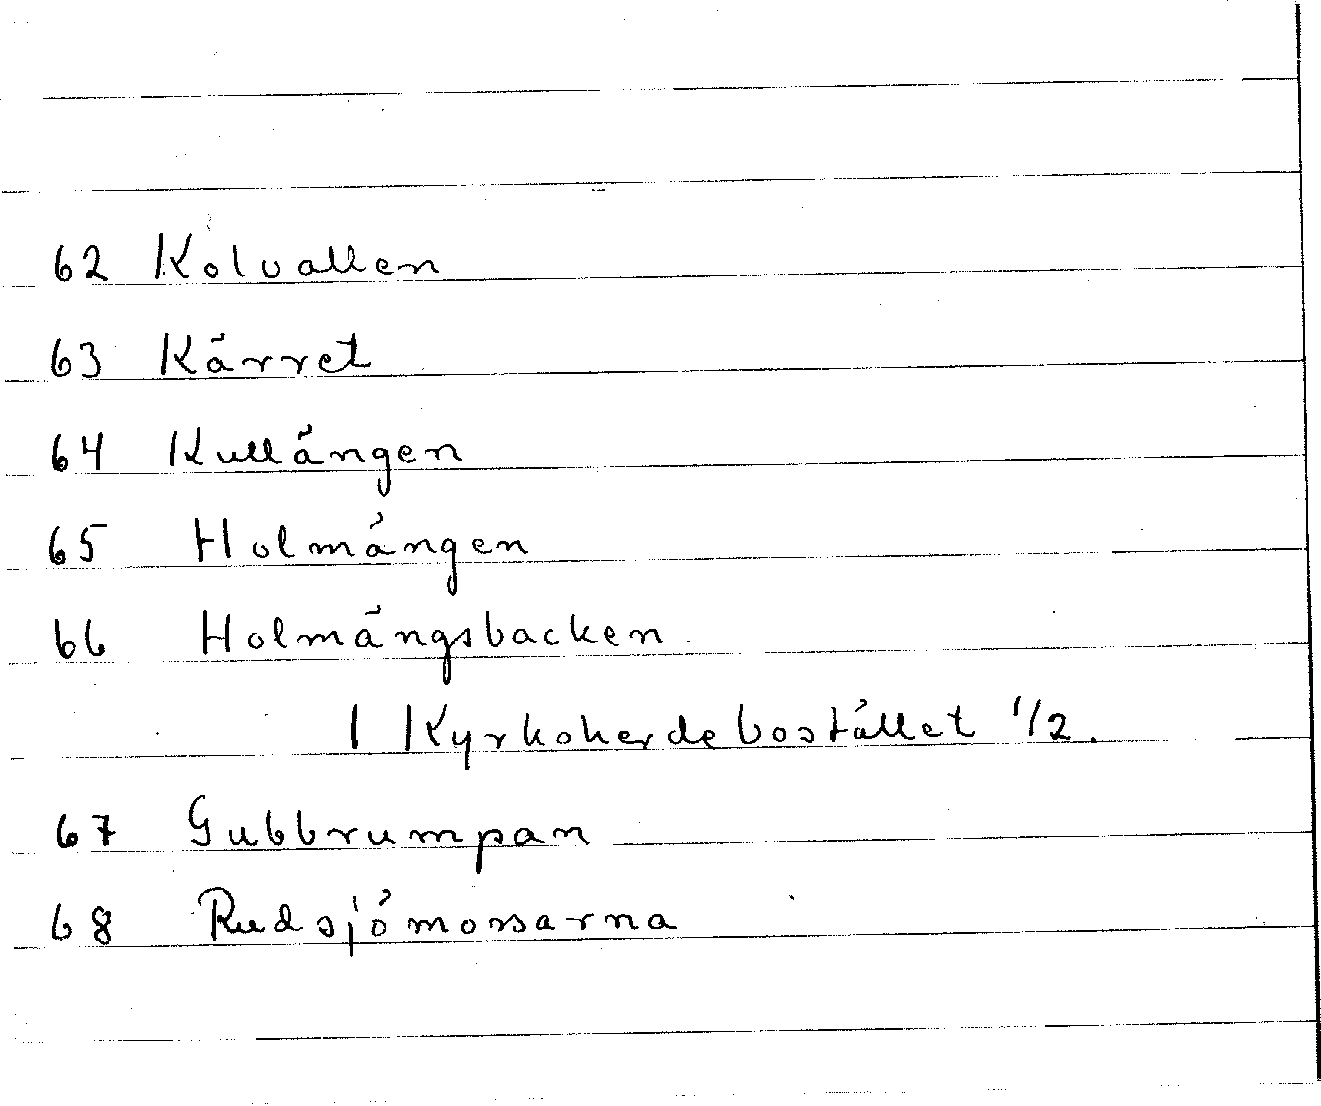 62 Kolvallen
63 Kärret
64 Kullängen
65 Holmängen
66 Holmängsbacken.
1 Kyrkoherdebostället 1/2.
67 Gubbrumpan
68 Rudsjömossarna